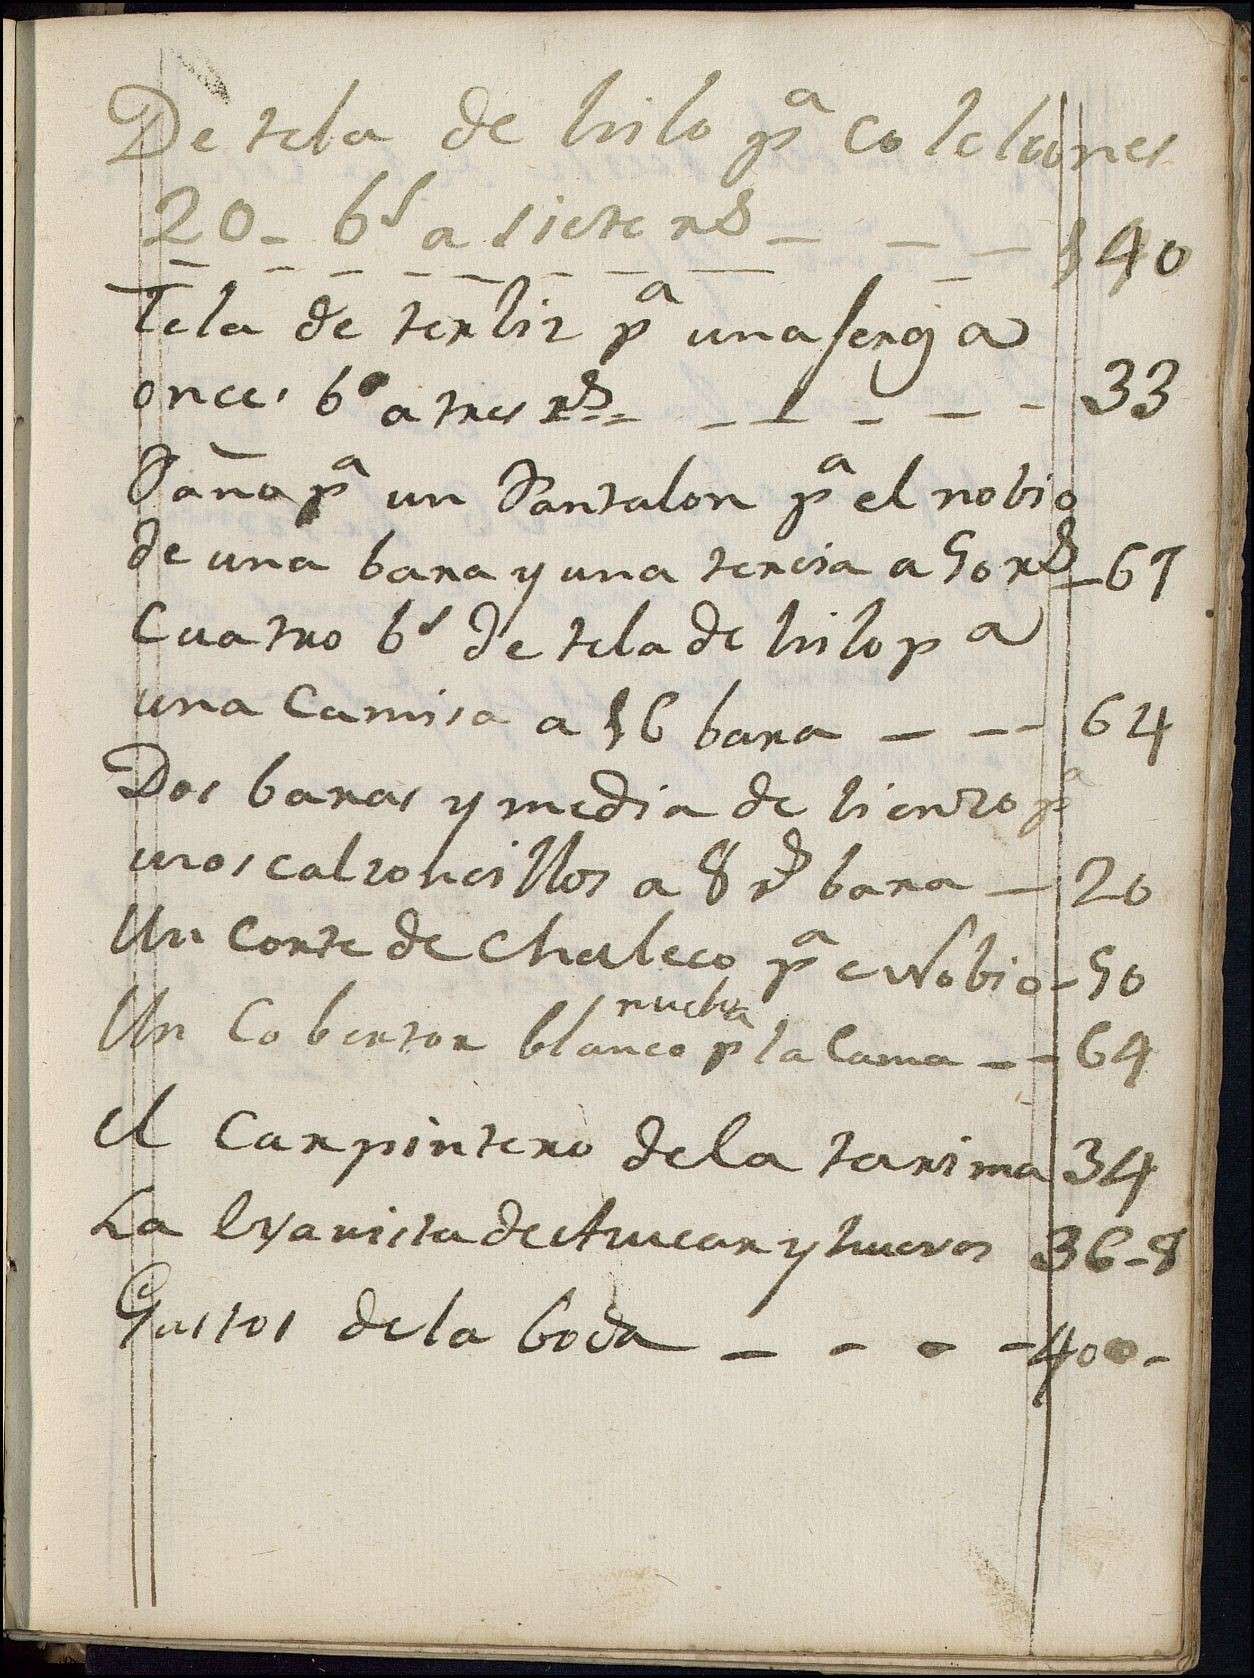 De tela de hilo pª colchones
20 - bs a siete rs - - - 140
Tela de terliz pª una serga
onces bs a tres rs - - - - - 33
Paño pª un Pantalon pª el nobio
de una bara y una tercia a 50 rs - 67
Cuatro bs de tela de hilo pa
una Camisa a 16 bara - - - 64
Dos baras y media de lienzo pª
unos calzoncillos a 8 rs bara - 20
Un Corte de Chaleco pª el Nobio - 50
Un Cobertor blanco nueba p la Cama - - 64
el Carpintero de la tarima 34
La de Azucar y huevos 36-8
Gastos de la boda - - - - 400-